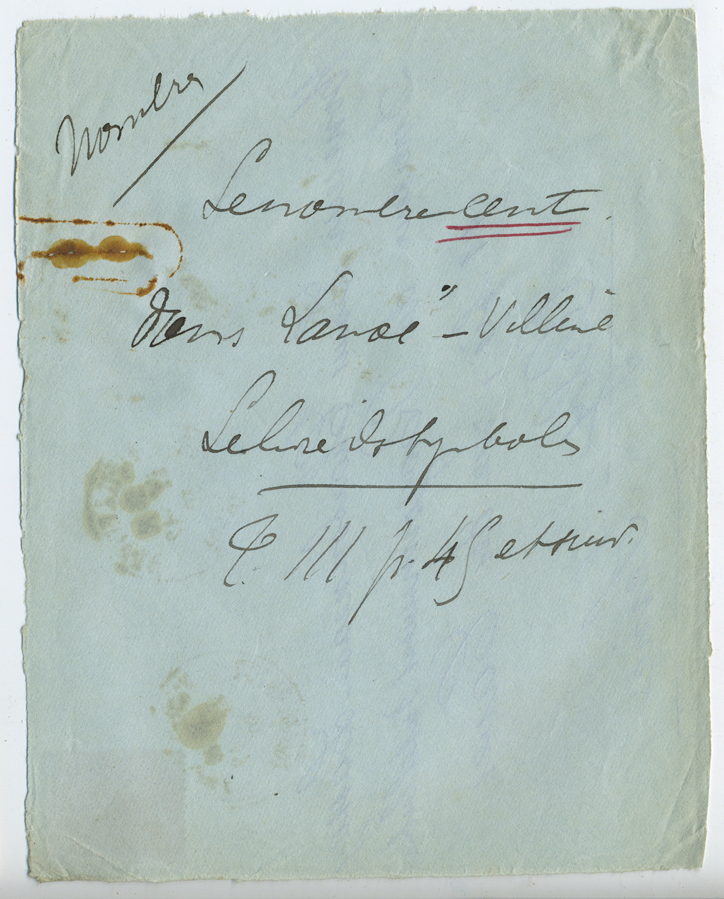 Nombre
Le nombre cent.
dans Lanoë-Villène
Le livre des symboles
T. III p. 45 et suiv.